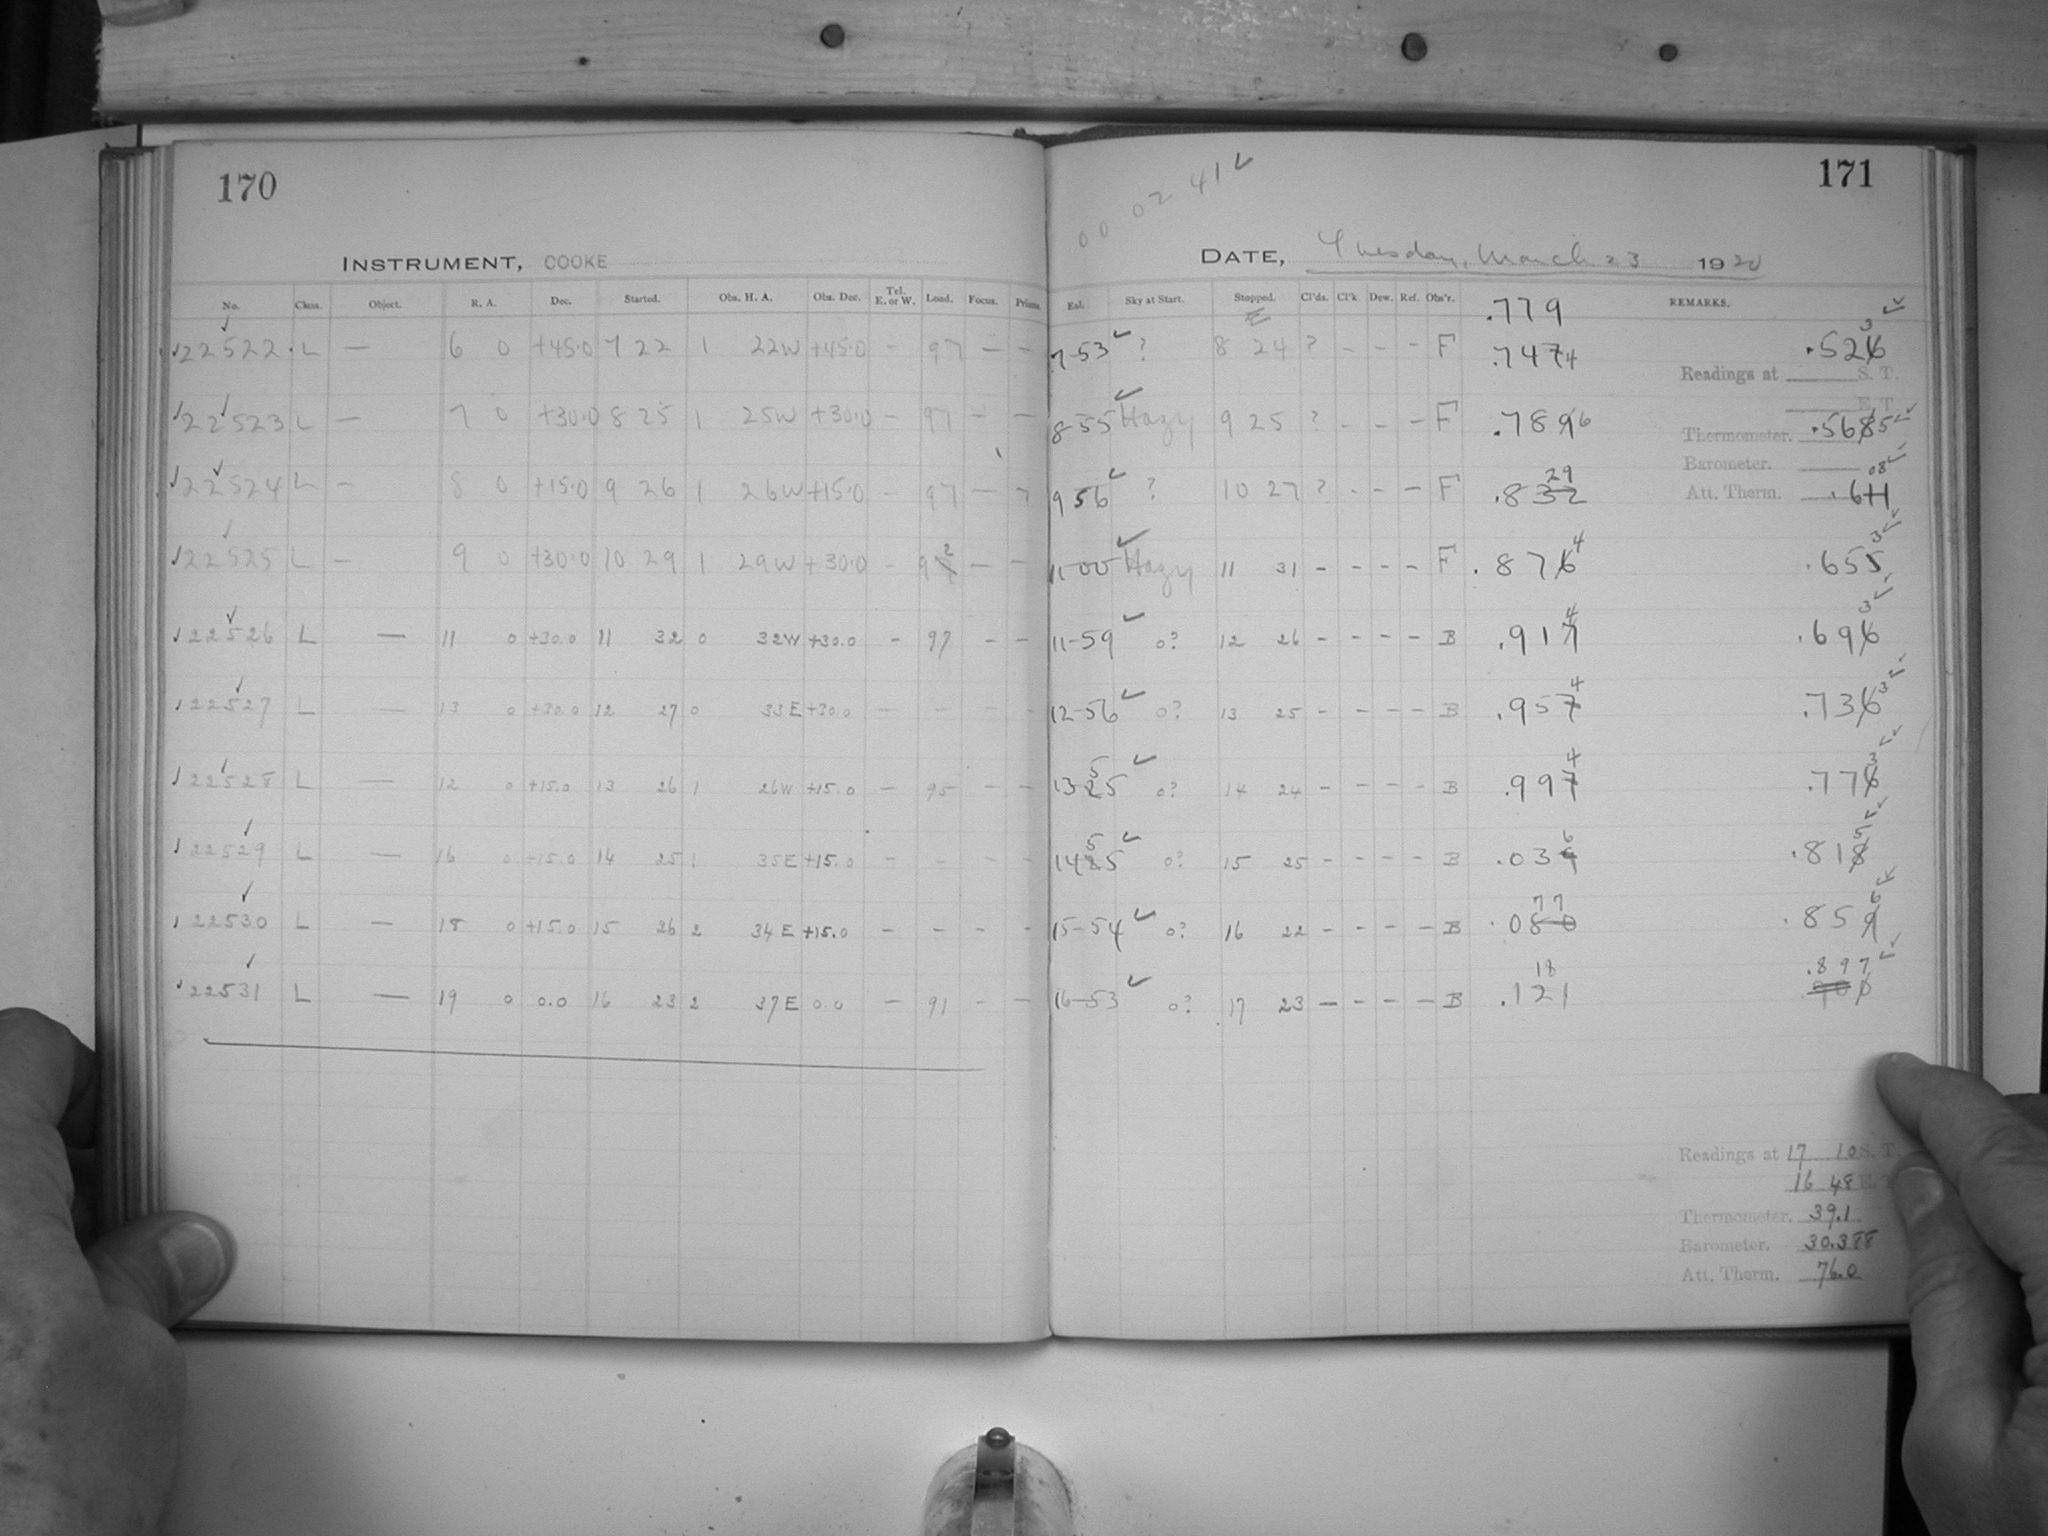 170
INSTRUMENT, COOKE
No. Class. Object. R. A. Dec. Started. Obs. H. A. Obs. Dec. Tel. E. or W. Load. Focus. Prisms.
22522 L — 6 0 +45.0 7 22 1 22W +45.0 - 97 — -
22523 L — 7 0 +30.0 8 25 1 25W +30.0 - 97 - -
22524 L - 8 0 +15.0 9 26 1 26W +15.0 - 97 — -
22525 L - 9 0 +30.0 10 29 1 29W +30.0 - 92 — -
22526 L — 11 0 +30.0 11 32 0 32W +30.0 - 97 - -
22527 L — 13 0 +30.0 12 27 0 33E +30.0 - - - -
22528 L — 12 0 +15.0 13 26 1 26W +15.0 - 95 - -
22529 L — 16 0 +15.0 14 25 1 35E +15.0 - - - -
22530 L — 18 0 +15.0 15 26 2 34E +15.0 - - - -
22531 L — 19 0 0.0 16 23 2 37E 0.0 - 91 - -
00 02 41 ✓
171
DATE, Tuesday, March 23 1920
Exl. Sky at Start. Stopped. Cl'ds. Cl'k. Dew. Ref. Obs'r. REMARKS.
E
.779
7-53 ✓ ? 8 24 ? - - - F .7474 .523
Readings at S. T.
E. T.
8-55 ✓ Hazy 9 25 ? - - - F .786 .565
Thermometer.
Barometer.
9 56 ✓ ? 10 27 ? - - - F .829 .608
Att. Therm.
11-00 ✓ Hazy 11 31 - - - - F .874 .653
11-59 ✓ 0? 12 26 - - - - B .914 .693
12-56 ✓ 0? 13 25 - - - - B .954 .733
13 55 ✓ 0? 14 24 - - - - B .994 .773
14 55 ✓ 0? 15 25 - - - - B .036 .815
15-54 ✓ 0? 16 22 - - - - B .077 .856
16-53 ✓ 0? 17 23 - - - - B .118 .897
Readings at 17 10 S. T.
16 48 E. T.
Thermometer. 39.1
Barometer. 30.388
Att. Therm. 76.0